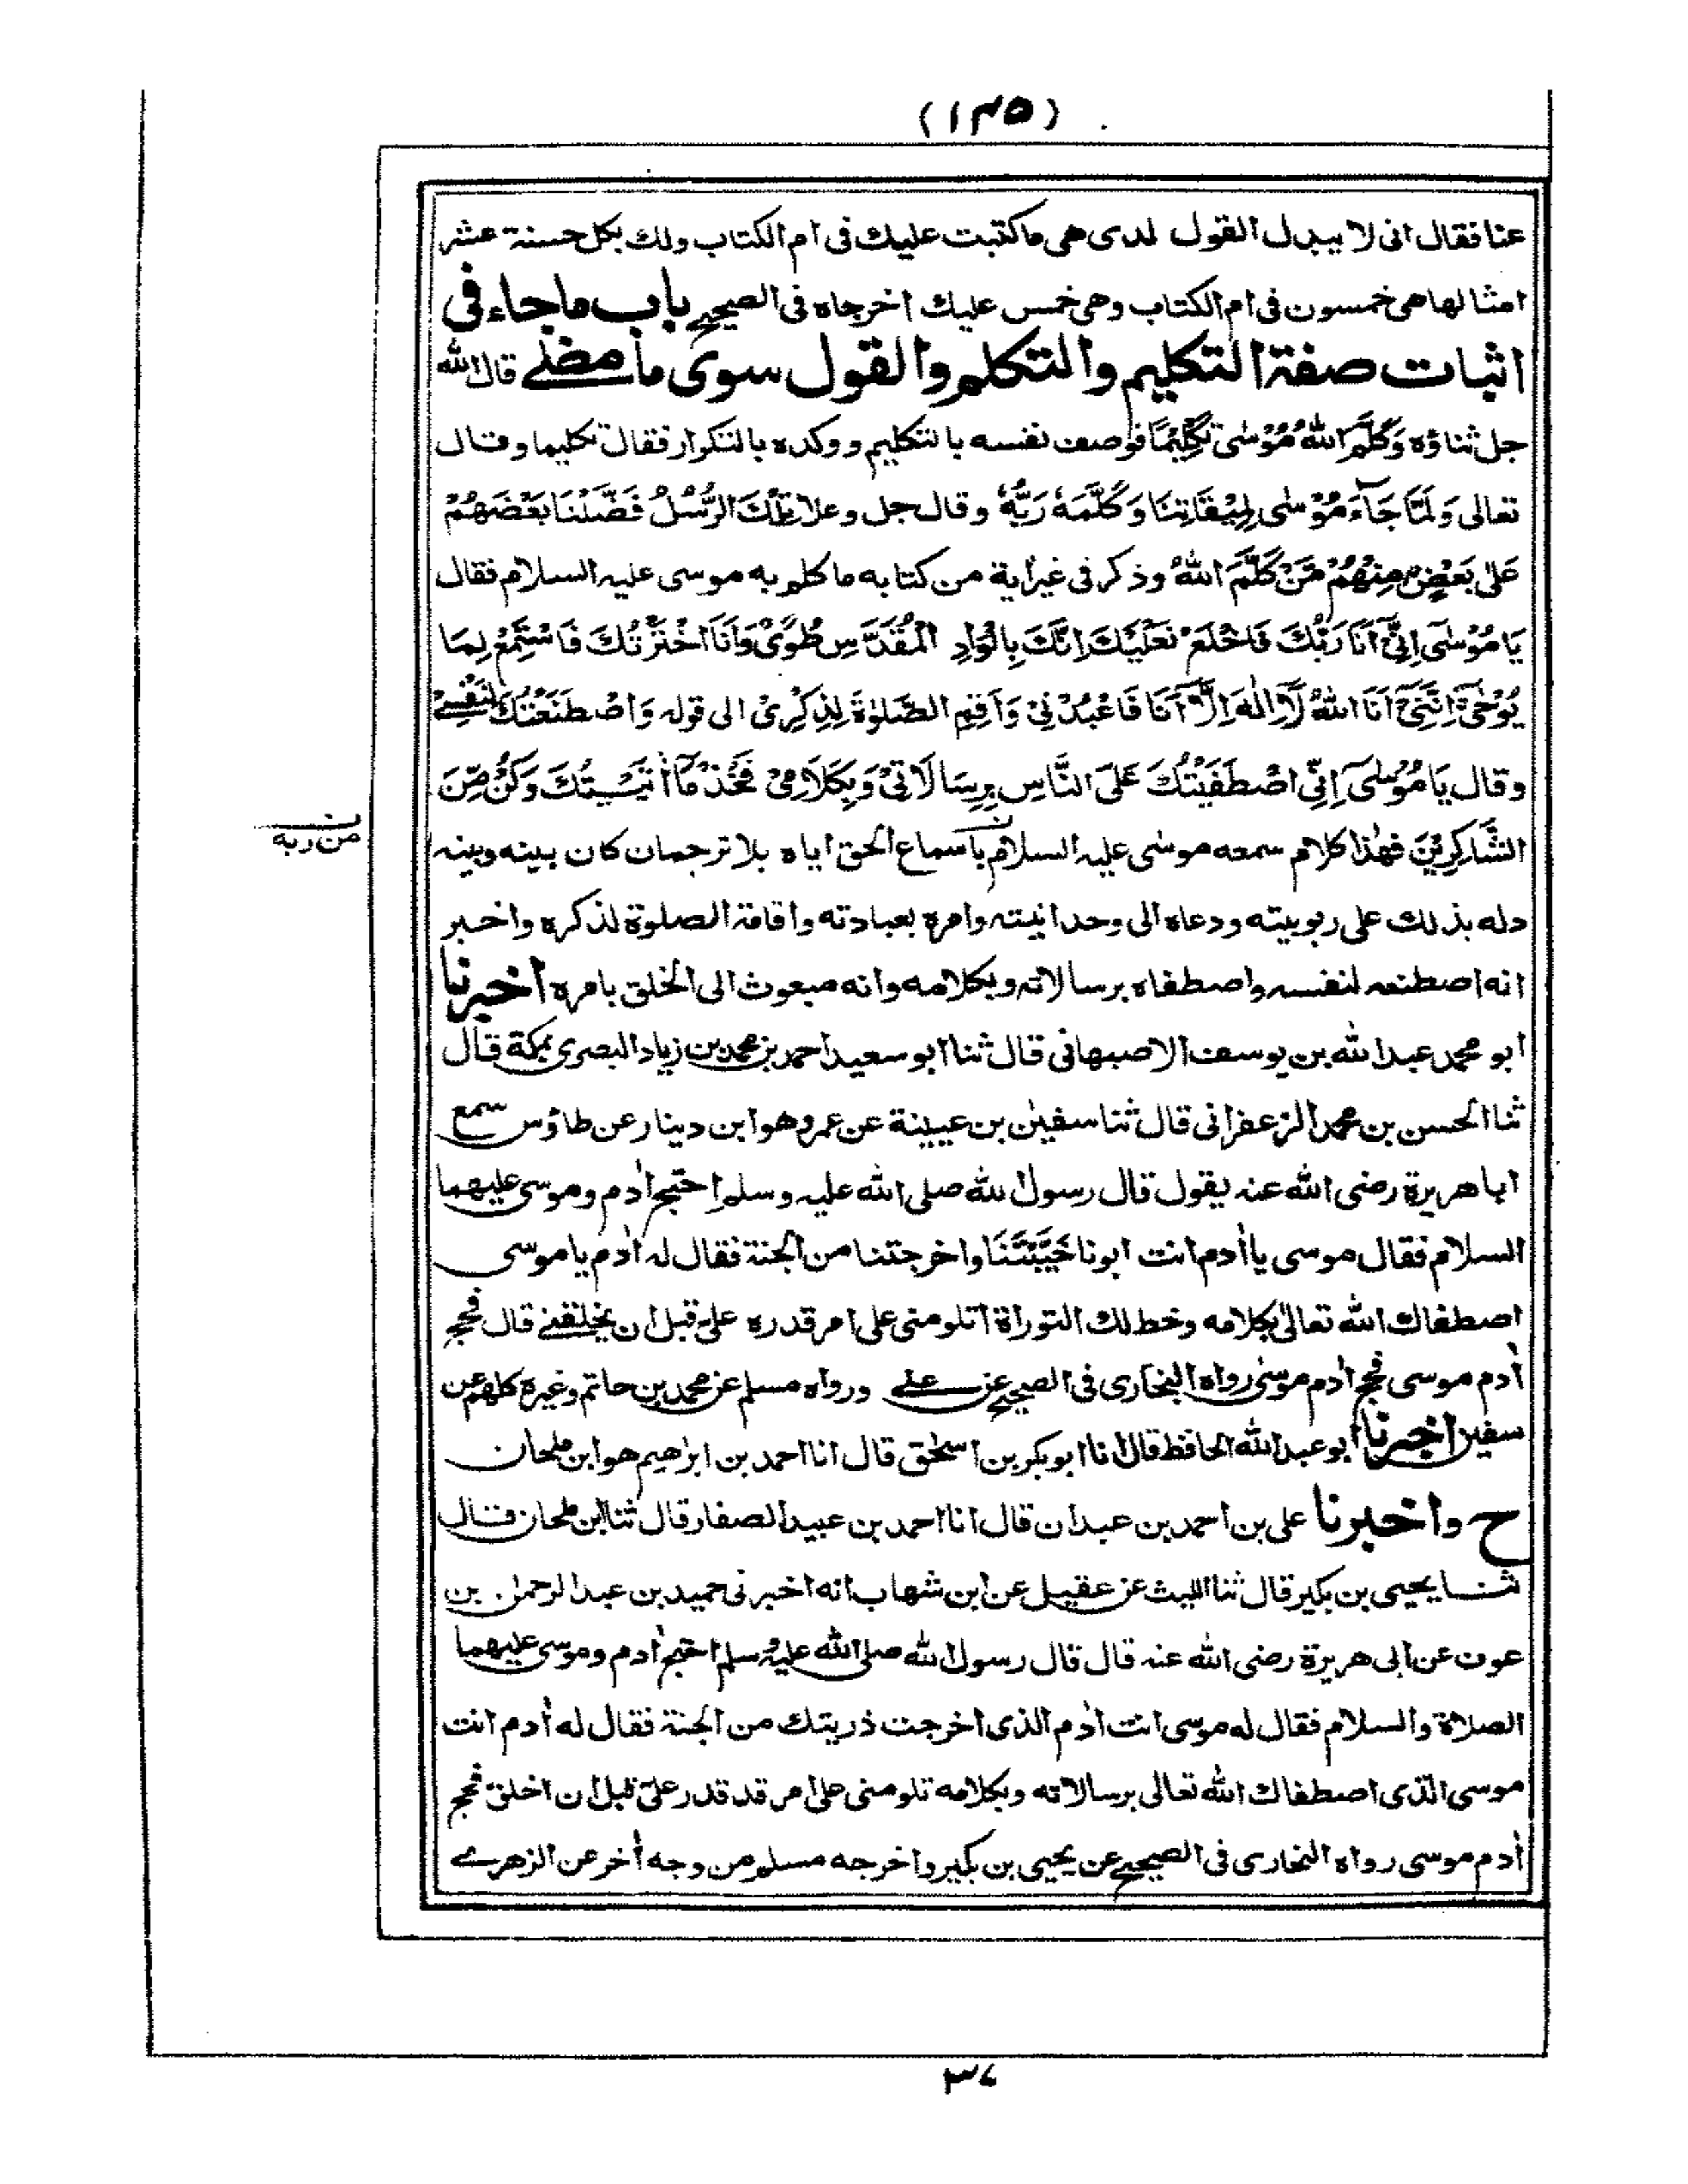 (١٣٥)
عنا فقال انى لا يبدل القول لدى هى ما كتبت عليك فى ام الكتاب ولك بكل حسنة عشر
امثالها هى خمسون فى ام الكتاب وهى خمس عليك اخرجاه فى الصحيح باب ما جاء فى
اثبات صفة التكليم والتكلم والقول سوى ما مضى قال الله
جل ثناؤه وَكَلَّمَ اللهُ مُوْسٰى تَكْلِيْمًا فوصف نفسه بالتكليم ووكده بالتكرار فقال تكليما وقال
تعالى وَلَمَّا جَآءَ مُوْسٰى لِمِيْقَاتِنَا وَكَلَّمَهٗ رَبُّهٗ وقال جل وعلا تِلْكَ الرُّسُلُ فَضَّلْنَا بَعْضَهُمْ
عَلٰى بَعْضٍ مِنْهُمْ مَّنْ كَلَّمَ اللهُ وذكر فى غير اية من كتابه ما كلم به موسى عليه السلام فقال
يَا مُوْسٰى اِنِّىْ اَنَا رَبُّكَ فَاخْلَعْ نَعْلَيْكَ اِنَّكَ بِالْوَادِ الْمُقَدَّسِ طُوًى وَاَنَا اخْتَرْتُكَ فَاسْتَمِعْ لِمَا
يُوْحٰى اِنَّنِىْ اَنَا اللهُ لَا اِلٰهَ اِلَّا اَنَا فَاعْبُدْنِىْ وَاَقِمِ الصَّلٰوةَ لِذِكْرِىْ الى قوله وَاصْطَنَعْتُكَ لِنَفْسِىْ
وقال يَا مُوْسٰى اِنِّى اصْطَفَيْتُكَ عَلَى النَّاسِ بِرِسَالَاتِىْ وَبِكَلَامِىْ فَخُذْ مَا اٰتَيْتُكَ وَكُنْ مِّنَ
الشَّاكِرِيْنَ فهذا كلام سمعه موسى عليه السلام باسماع الحق اياه بلا ترجمان كان بينه وبينه
ن
من ربه
دله بذلك على ربوبيته ودعاه الى وحدانيته وامره بعبادته واقامة الصلوة لذكره واخبر
انه اصطنعه لنفسه واصطفاه برسالاته وبكلامه وانه مبعوث الى الخلق بامره اخبرنا
ابو محمد عبد الله بن يوسف الاصبهانى قال ثنا ابو سعيد احمد بن محمد بن زياد البصرى بمكة قال
ثنا الحسن بن محمد الزعفرانى قال ثنا سفين بن عيينة عن عمرو هو ابن دينار عن طاؤس سمع
ابا هريرة رضى الله عنه يقول قال رسول الله صلى الله عليه وسلم احتج اٰدم وموسى عليهما
السلام فقال موسى يا اٰدم انت ابونا خَيَّبْتَنَا واخرجتنا من الجنة فقال له اٰدم يا موسى
اصطفاك الله تعالى بكلامه وخط لك التوراة اتلومنى على امر قدره على قبل ان يخلقنى قال فحج
اٰدم موسى فحج اٰدم موسى رواه البخارى فى الصحيح عن على ورواه مسلم عن محمد بن حاتم وغيره كلهم عن
سفين اخبرنا ابو عبد الله الحافظ قال انا ابو بكر بن اسحٰق قال انا احمد بن ابرٰهيم هو ابن ملحان
ح واخبرنا على بن احمد بن عبدان قال انا احمد بن عبيد الصفار قال ثنا ابن ملحان قال
ثنا يحيى بن بكير قال ثنا الليث عن عقيل عن ابن شهاب انه اخبرنى حميد بن عبد الرحمٰن بن
عوف عن ابى هريرة رضى الله عنه قال قال رسول الله صلى الله عليه وسلم احتج اٰدم وموسى عليهما
الصلاة والسلام فقال له موسى انت اٰدم الذى اخرجت ذريتك من الجنة فقال له اٰدم انت
موسى الذى اصطفاك الله تعالى برسالاته وبكلامه تلومنى على امر قد قدر علىّ قبل ان اخلق فحج
اٰدم موسى رواه البخارى فى الصحيح عن يحيى بن بكير واخرجه مسلم من وجه اٰخر عن الزهرى